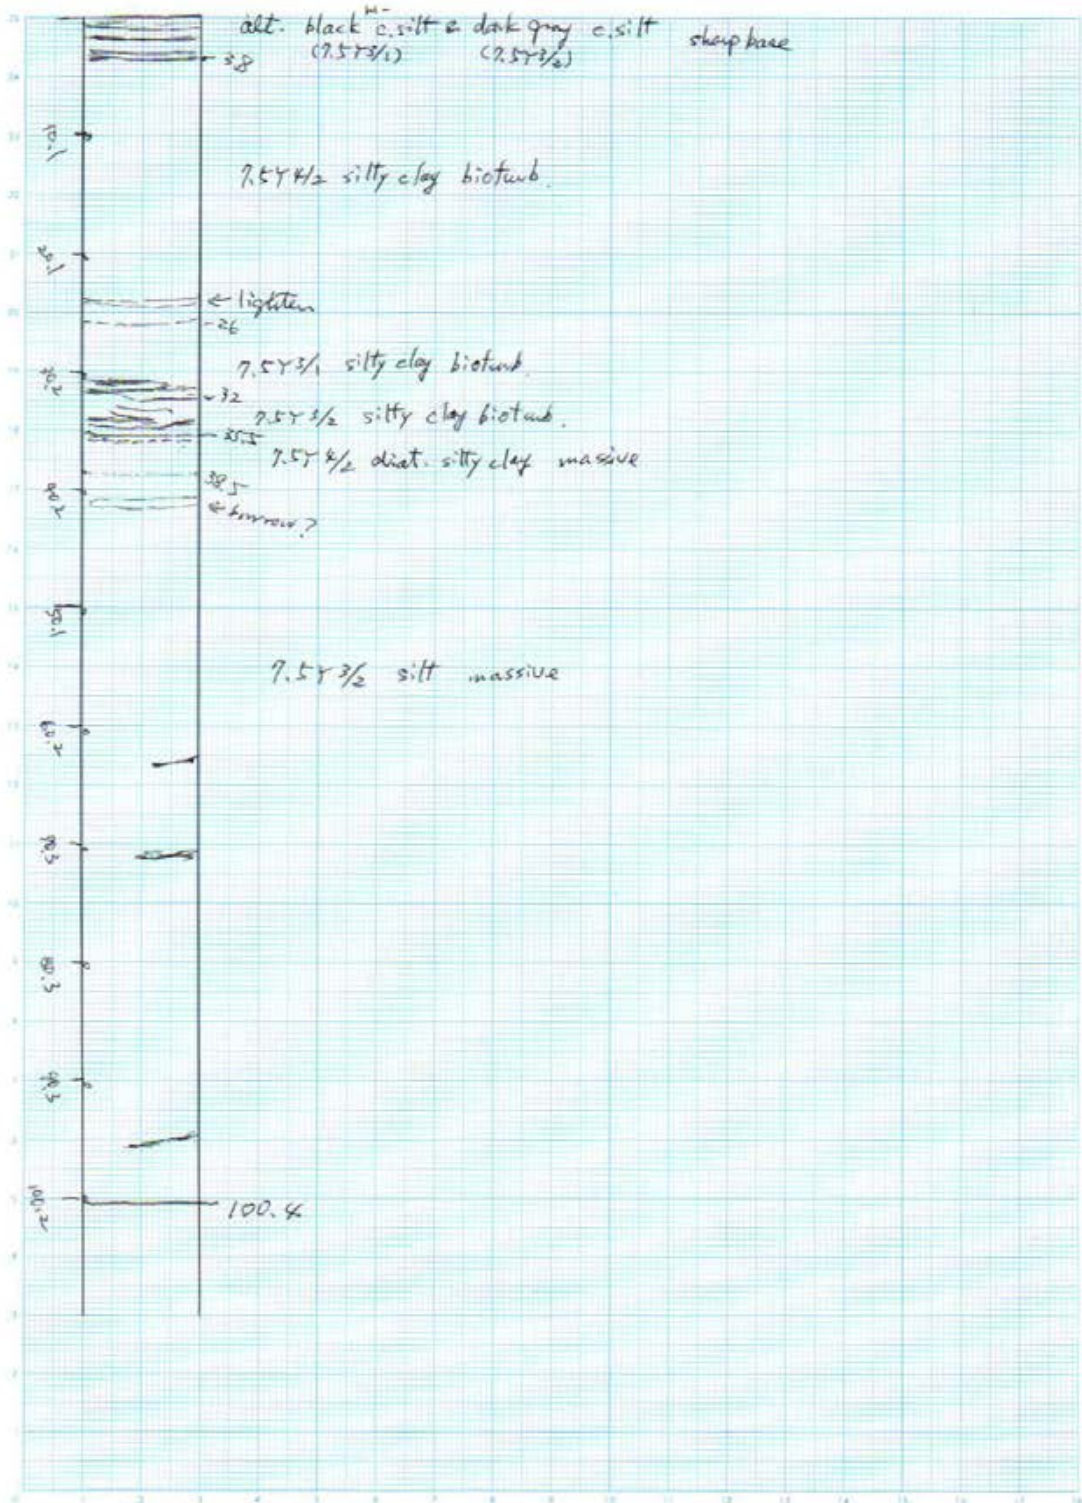 M-
alt. black c.silt & dark gray c.silt sharp base
(7.5Y3/1) (7.5Y3/2)
3.8
10.1
7.5Y4/2 silty clay bioturb.
20.1
← lighten
26
30.2
7.5Y3/1 silty clay bioturb.
32
7.5Y3/2 silty clay bioturb.
35.5
7.5Y4/2 diat. silty clay massive
38.5
40.2
← burrow?
50.1
7.5Y3/2 silt massive
60.2
70.3
80.3
90.3
100.2
100.4